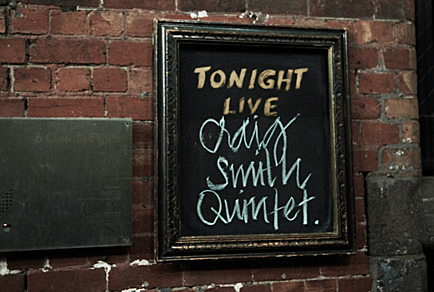 TONIGHT
LIVE
Craig
Smith
Quintet.